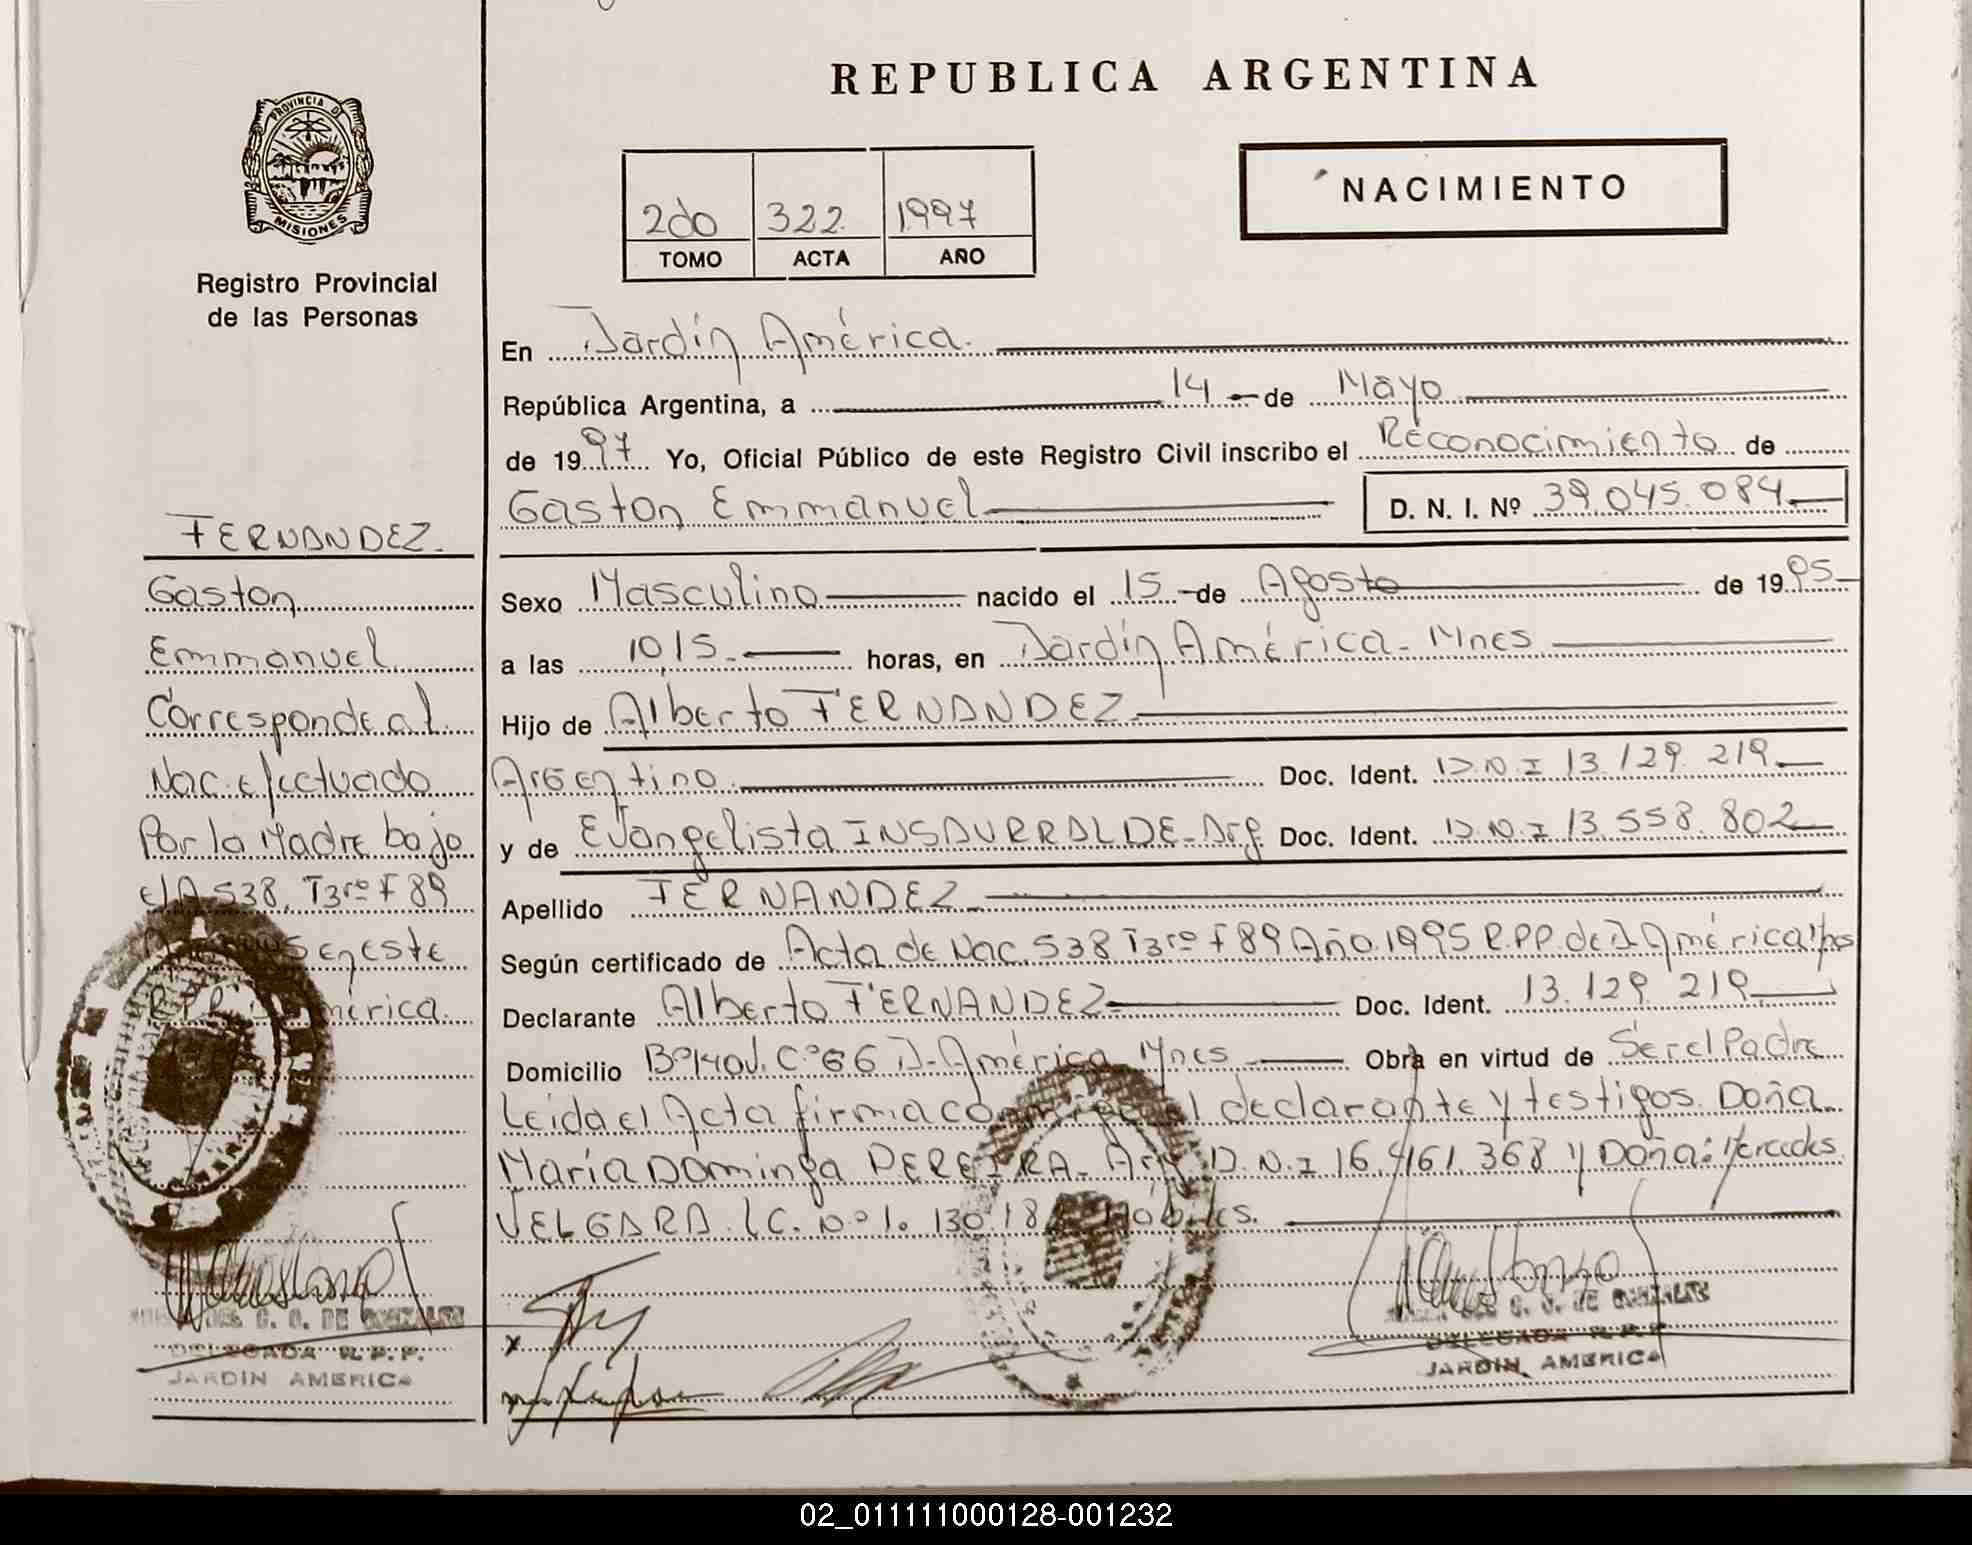 REPUBLICA ARGENTINA
PROVINCIA DE
MISIONES
Registro Provincial
de las Personas
2do 322 1997
TOMO ACTA AÑO
NACIMIENTO
En Jardín América.
República Argentina, a 14 de Mayo
de 1997 Yo, Oficial Público de este Registro Civil inscribo el Reconocimiento de
Gaston Emmanuel D. N. I. Nº 39.045.084
Sexo Masculino nacido el 15 de Agosto de 1995
a las 10,15 horas, en Jardín América - Mnes
Hijo de Alberto FERNANDEZ
Argentino Doc. Ident. D.N.I 13.129.219
y de Evangelista INSAURRALDE - Arg. Doc. Ident. D.N.I 13.558.802
Apellido FERNANDEZ
Según certificado de Acta de Nac. 538 T3ro F89 Año 1995 R.P.P. de J. América
Declarante Alberto FERNANDEZ Doc. Ident. 13.129.219
Domicilio J. América Mnes Obra en virtud de Ser el Padre
Leida el Acta firma declarante y testigos Doña
María Dominga PEREIRA - Arg D.N.I 16.461.368 y Doña: Mercedes
VELGARA. LC. Nº 1.130.18
FERNANDEZ.
Gaston
Emmanuel
Corresponde al
Nac. efectuado
Por la Madre bajo
el A 538, T3ro F 89
en este
R.P.P. América.
C. G. DE GONZALEZ
DELEGADA R.P.P.
JARDIN AMERICA
x
C. G. DE GONZALEZ
DELEGADA R.P.P
JARDIN AMERICA
02_011111000128-001232